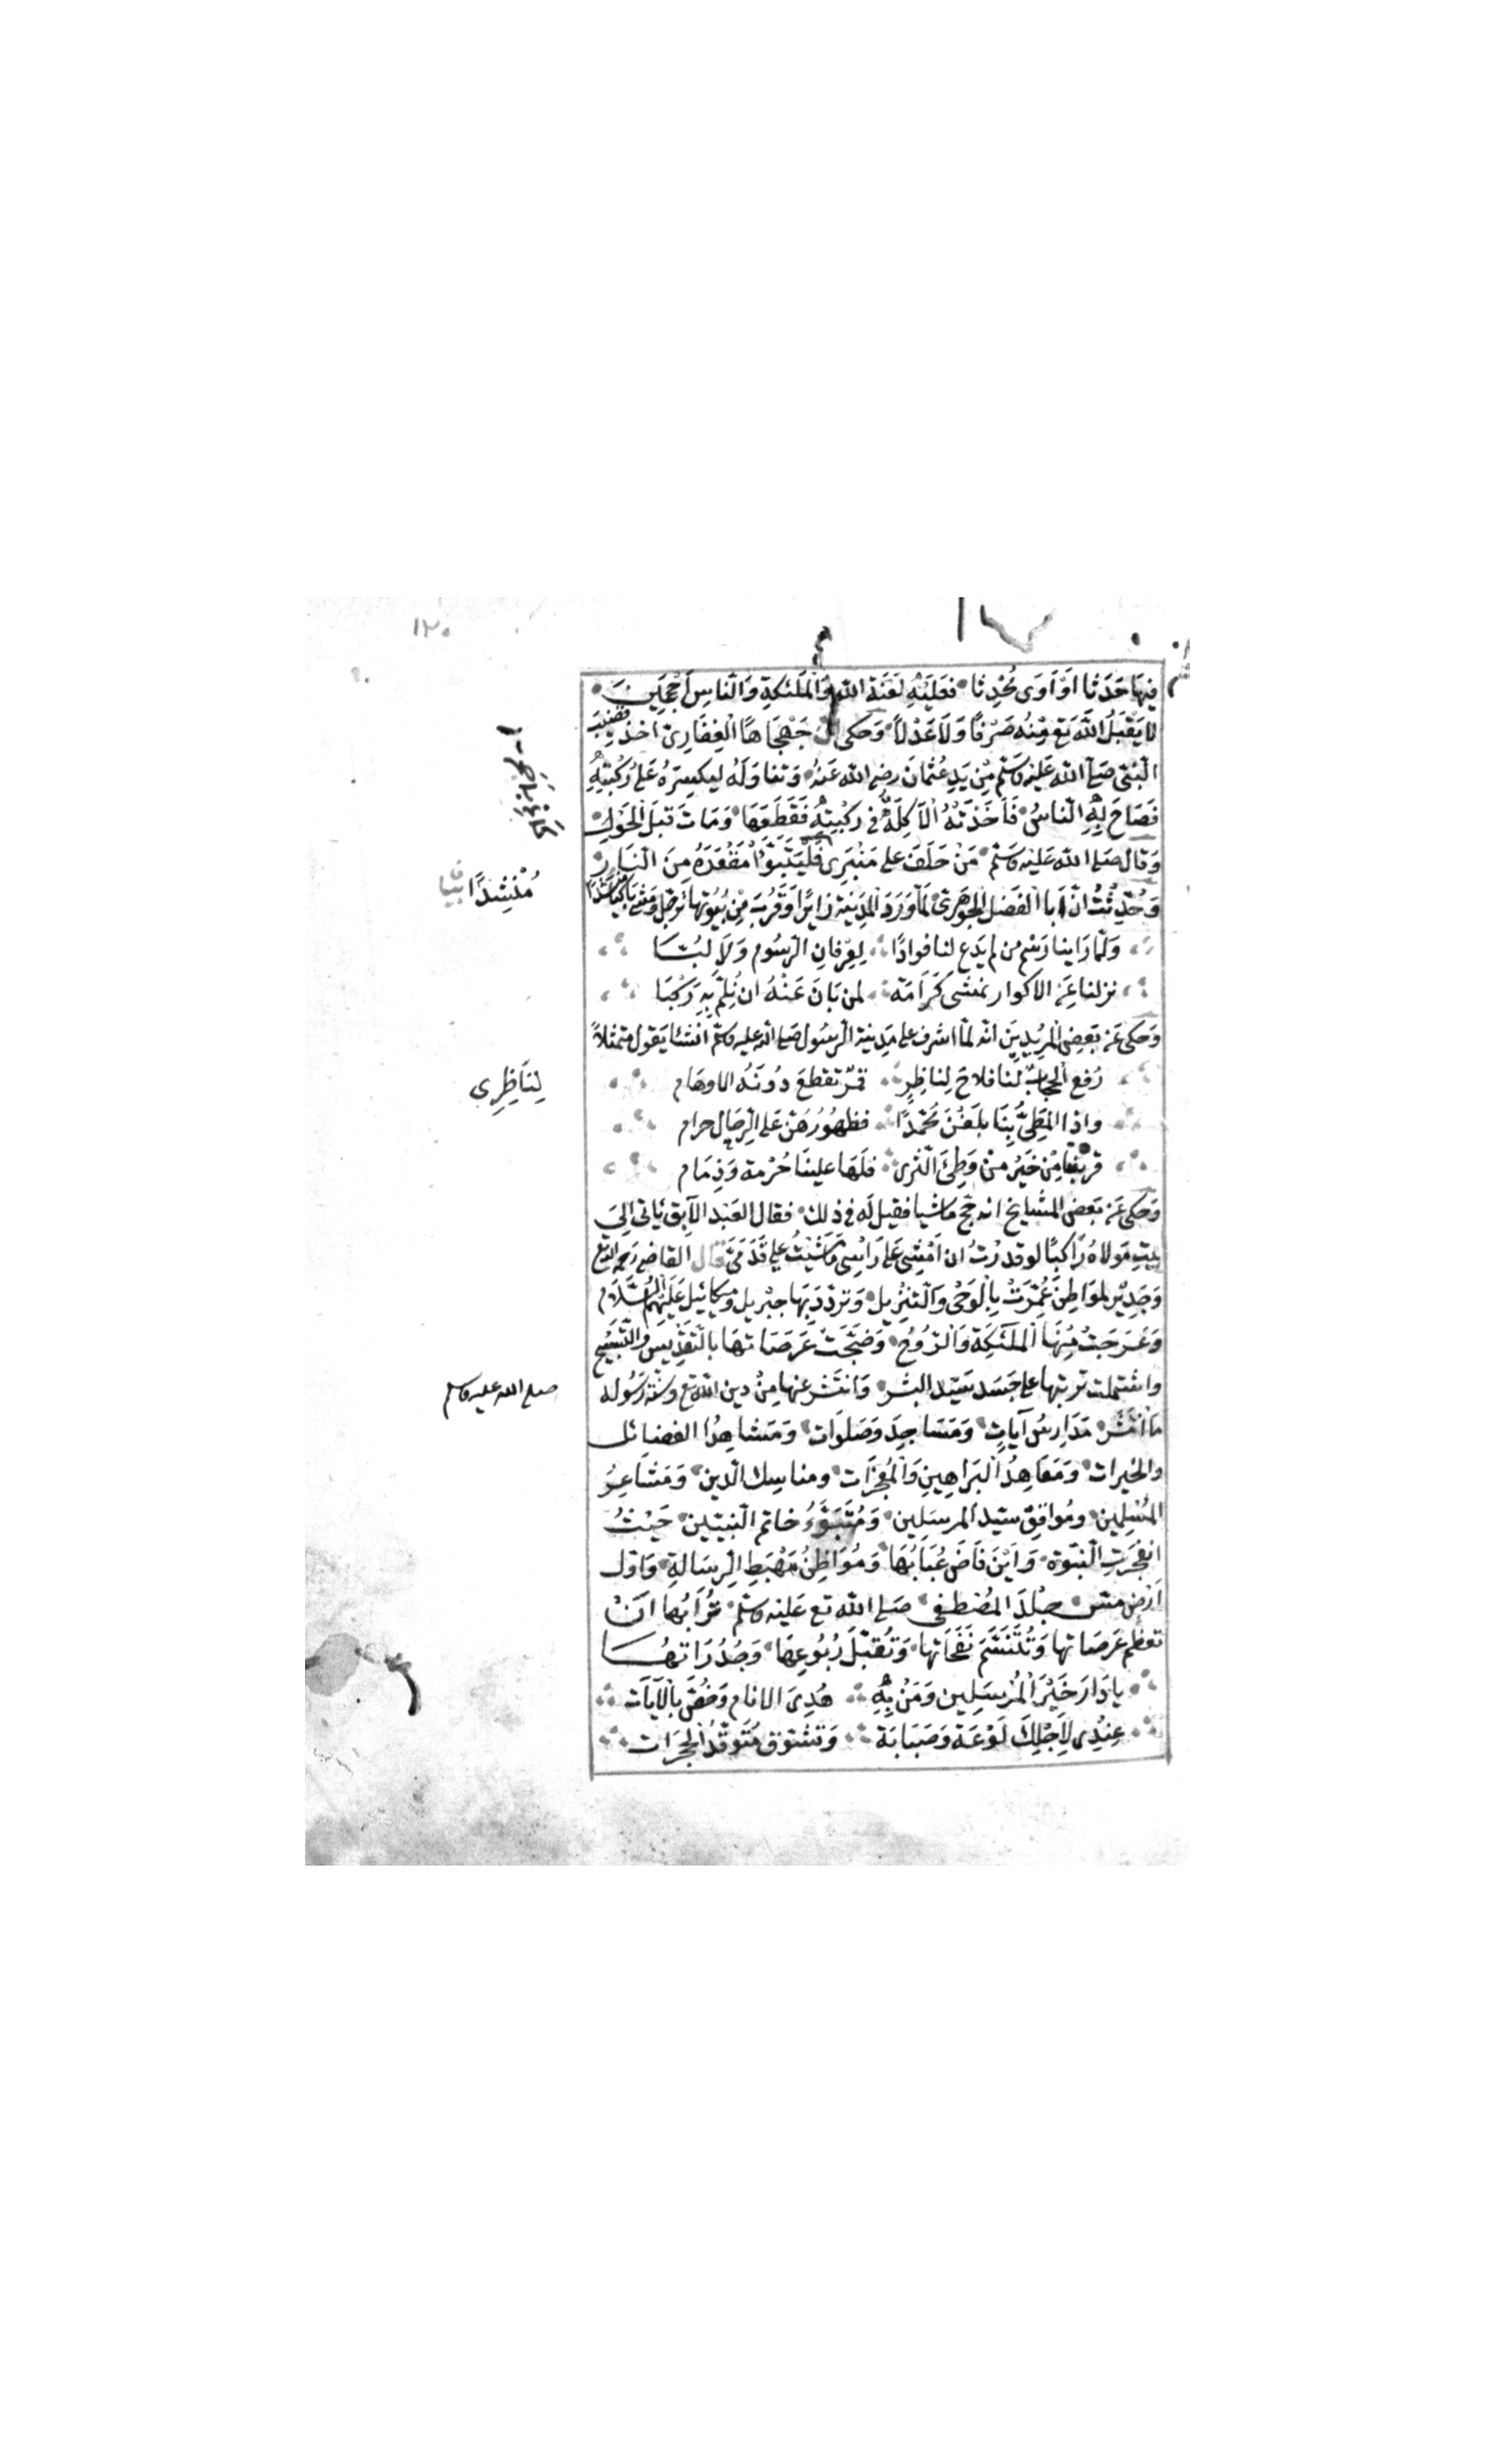 ١٢٠
فيهَا حَدَثا اوْ اَوَى مُحْدِثا فعَلَيْهِ لعَنَة الله وَالْمَلَئكةِ وَالنّاسِ اَجْمَعِينَ
لا يَقْبَلُ الله تع مِنْهُ صَرْفًا وَلا عَدْلاً وَحكى انّ جَهْجَاهًا الْغِفَارِىّ اخذ قضيبَ
النّبىّ صلى الله عَليْه وسَلّم مِنْ يَدِ عُثْمانَ رضى الله عَنهُ وَتنا وَلَهُ ليكسِرَهُ عَلى رُكْبَتِهِ
فَصَاحَ بِهِ النّاسُ فَاَخَذتْهُ الْآكِلَةُ فى ركْبتِهِ فَقَطَعَهَا وَمَاتَ قبْلَ الْحَوْلِ
وَقال صَلى الله عَليْه وسَلّم مَنْ حَلَفَ على مَنْبَرِى فَلْيَتَبَوَّأْ مَقْعَدَهُ مِنَ النّارِ
وَحُدِّثْتُ انّ اَبا الْفَضل الجوْهَرىّ لمّا وَرَدَ الْمَدِينة زايرًا وَقَرُبَ مِنْ بُيُوتِها ترجّل وَمَشى باكيا منشدًا
مُنْشِدًا
وَلمّا رَاينا رَسْم من لم يَدَع لنا فوادًا لِعِرْفانِ الرسُوم وَلا لبُّا
نزلنا عَنِ الاكوار نمشى كَرَامَة لمن بَانَ عَنْهُ ان نُلِمّ بِهِ رَكْبَا
وَحكى عَنْ بَعضِ المُرِيدِينَ انّه لمّا اشرف على مَدِينة الرسُول صلى الله عليه وسلم انشأ يَقول متمثلاً
رُفع الحجابُ لَنا فلاحَ لِناظِرٍ قمرٌ تقطعَ دُونَهُ الاوهَام
لِنَاظِرِى
واذا المَطِىُّ بِنَا بلَغْنَ مُحَمّدًا فظهُورُهُنّ عَلى الرّحَال حرام
قربْننا مِنْ خَيْرُ مَنْ وَطِئَ الثّرى فلَهَا علينَا حُرْمة وَذِمَام
وَحكى عَنْ بَعض المشايخ انه حج ماشيا فقيل له فى ذلك فقال العَبْد الآبِق يَاتى الىَ
بيتِ مَولاهُ راكبًا لو قدرْتُ ان اَمْشِى عَلى رَاسِى مَا مَشَيْتُ على قَدَمَىّ قال القاضى رحمه الله تع
وَجَدِيْر لمَوَاطِنَ عُمِرَتْ بِالْوَحْى وَالتنْزِيل وَتردّدَ بَهَا جبْريل وميكائيل عَليْهِمَا السَّلام
وَعَرَجَتْ مِنْهَا الْمَلَئكَةِ وَالرّوُح وَضَجّتْ عَرَصَاتهَا بالتّقْدِيس وَالتّسْبيح
واشتملت تربتها على جَسَد سَيّد البشَر وَانتشَر عنها مِنْ دين الله تع وسُنّة رَسُوله
صلى الله عليه وسلم
مَا انْتَشَر مَدَارِسُ آيَاتٍ وَمَسَاجِدَ وَصَلوَات وَمَشاهِدُ الفضائل
والخيرات وَمَعَاهِدُ الْبَرَاهِينِ وَالْمُعْجِزَات ومناسِك الدّين وَمَشَاعِرُ
المُسْلِمِين ومُوَاقِف سيّد المرسَلِين وَمُتَبَوَّءُ خاتم النّبيّين حَيْثُ
انفجَرَتِ النّبوّة وَاَيْنَ فَاضَ عُبَابُهَا وَمُوَاطِنُ مَهْبَطِ الرِسَالةِ وَاوّل
اَرْض مسّ جِلْدَ المُصْطفى صَلى الله تع عَليْه وسَلّم تُرَابُها اَنْ
تعظّم عَرَصَاتها وَتُتَنَسَّمَ نَفَحَاتها وَتُقبّلَ رُبُوعِهَا وَجُدُرَاتهُا
يا دَارَ خَيْرَ الْمُرْسَلِين وَمَنْ بِهِ هُدِىَ الانام وَخُصّ بالْآيَات
عِنْدِى لِاَجْلِكَ لَوْعَة وَصَبَابَة وَتشوّق مُتَوقّدُ الجَمَرَات